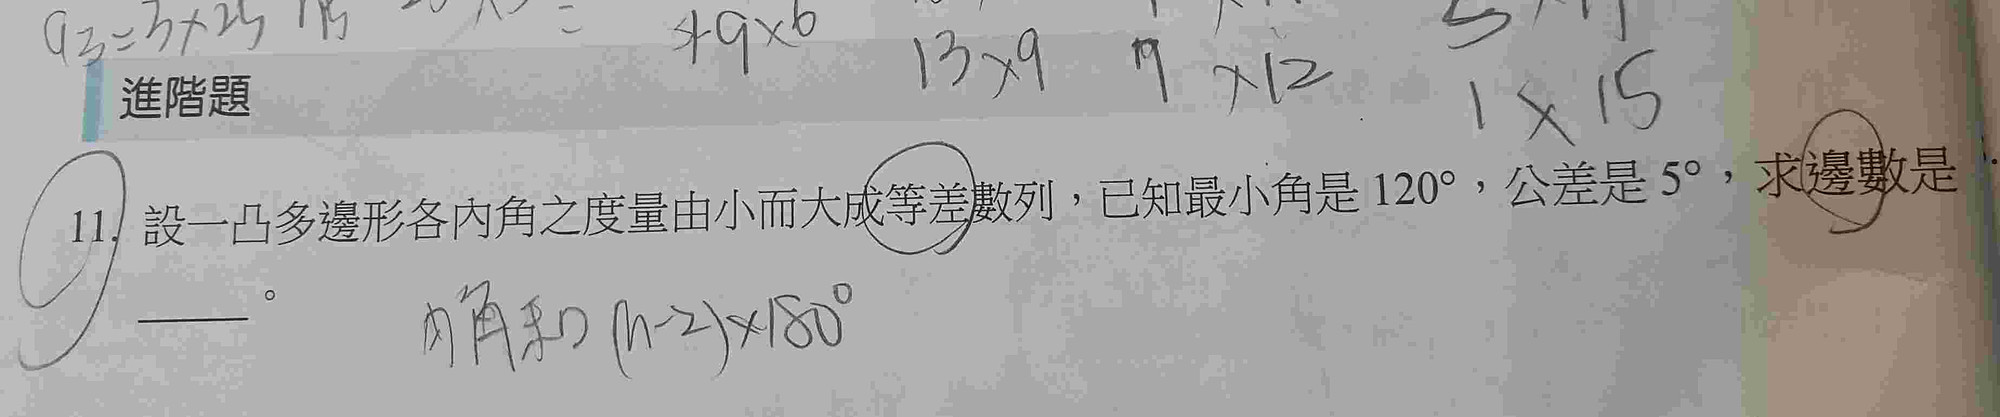 a3=3×25
+9×6
13×9
×12
1×15
進階題
11. 設一凸多邊形各內角之度量由小而大成等差數列，已知最小角是 120°，公差是 5°，求邊數是
____。
內角和 (n-2)×180°